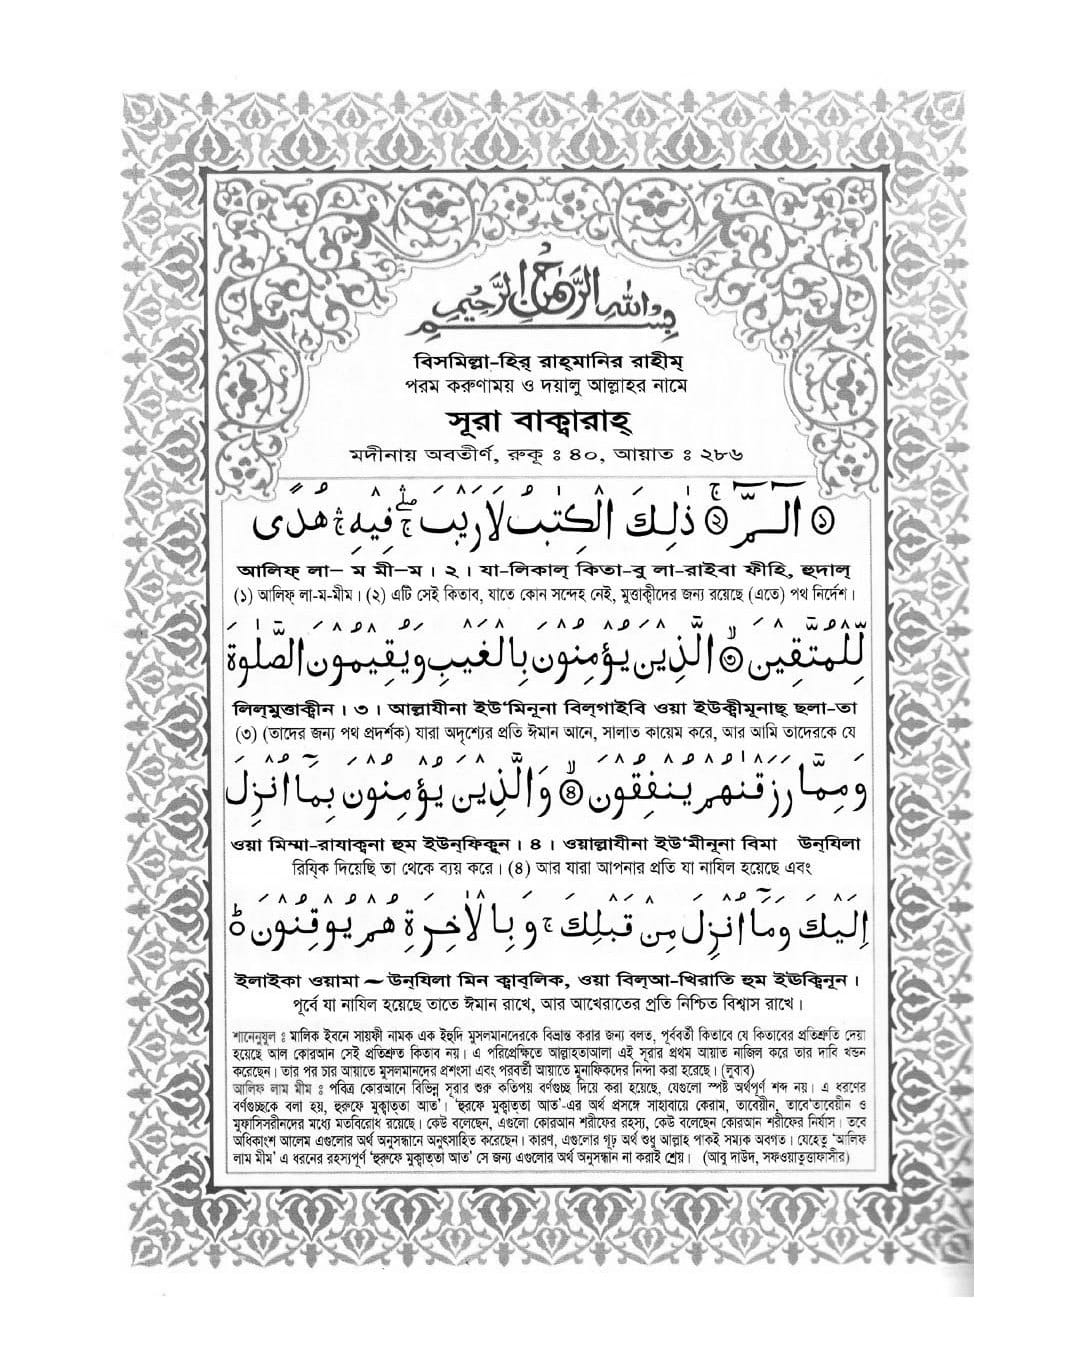 بِسْمِ اللهِ الرَّحْمٰنِ الرَّحِيْمِ
বিসমিল্লা-হির্ রাহ্‌মানির রাহীম্
পরম করুণাময় ও দয়ালু আল্লাহর নামে
সূরা বাক্বারাহ্
মদীনায় অবতীর্ণ, রুকূ ঃ ৪০, আয়াত ঃ ২৮৬
১ الٓـمّٓ ۚ ২ ذٰلِكَ الْكِتٰبُ لَا رَيْبَ ۛۖۚ فِيْهِ ۛۚ هُدًى
আলিফ্ লা— ম মী—ম। ২। যা-লিকাল্ কিতা-বু লা-রাইবা ফীহি, হুদাল্
(১) আলিফ্ লা-ম-মীম। (২) এটি সেই কিতাব, যাতে কোন সন্দেহ নেই, মুত্তাক্বীদের জন্য রয়েছে (এতে) পথ নির্দেশ।
لِّلْمُتَّقِيْنَ ۙ ৩ الَّذِيْنَ يُؤْمِنُوْنَ بِالْغَيْبِ وَيُقِيْمُوْنَ الصَّلٰوةَ
লিল্‌মুত্তাক্বীন। ৩। আল্লাযীনা ইউ'মিনূনা বিল্‌গাইবি ওয়া ইউক্বীমূনাছ্ ছলা-তা
(৩) (তাদের জন্য পথ প্রদর্শক) যারা অদৃশ্যের প্রতি ঈমান আনে, সালাত কায়েম করে, আর আমি তাদেরকে যে
وَمِمَّا رَزَقْنٰهُمْ يُنْفِقُوْنَ ۙ ৪ وَالَّذِيْنَ يُؤْمِنُوْنَ بِمَآ اُنْزِلَ
ওয়া মিম্মা-রাযাক্বনা হুম ইউন্‌ফিকূন। ৪। ওয়াল্লাযীনা ইউ'মীনূনা বিমা উন্‌যিলা
রিযি্‌ক দিয়েছি তা থেকে ব্যয় করে। (৪) আর যারা আপনার প্রতি যা নাযিল হয়েছে এবং
اِلَيْكَ وَمَآ اُنْزِلَ مِنْ قَبْلِكَ ۚ وَبِالْاٰخِرَةِ هُمْ يُوْقِنُوْنَ ؕ
ইলাইকা ওয়ামা ~ উন্‌যিলা মিন ক্বাব্‌লিক, ওয়া বিল্‌আ-খিরাতি হুম ইঊক্বিনূন।
পূর্বে যা নাযিল হয়েছে তাতে ঈমান রাখে, আর আখেরাতের প্রতি নিশ্চিত বিশ্বাস রাখে।
শানেনুযুল ঃ মালিক ইবনে সায়ফী নামক এক ইহুদি মুসলমানদেরকে বিভ্রান্ত করার জন্য বলত, পূর্ববর্তী কিতাবে যে কিতাবের প্রতিশ্রুতি দেয়া
হয়েছে আল কোরআন সেই প্রতিশ্রুত কিতাব নয়। এ পরিপ্রেক্ষিতে আল্লাহতাআলা এই সূরার প্রথম আয়াত নাজিল করে তার দাবি খন্ডন
করেছেন। তার পর চার আয়াতে মুসলমানদের প্রশংসা এবং পরবর্তী আয়াতে মুনাফিকদের নিন্দা করা হয়েছে। (লুবাব)
আলিফ লাম মীম ঃ পবিত্র কোরআনে বিভিন্ন সূরার শুরু কতিপয় বর্ণগুচ্ছ দিয়ে করা হয়েছে, যেগুলো স্পষ্ট অর্থপূর্ণ শব্দ নয়। এ ধরণের
বর্ণগুচ্ছকে বলা হয়, হুরুফে মুক্বাত্‌তা আত'। 'হুরফে মুক্বাত্‌তা আত'-এর অর্থ প্রসঙ্গে সাহাবায়ে কেরাম, তাবেয়ীন, তাবে'তাবেয়ীন ও
মুফাসিসরীনদের মধ্যে মতবিরোধ রয়েছে। কেউ বলেছেন, এগুলো কোরআন শরীফের রহস্য, কেউ বলেছেন কোরআন শরীফের নির্যাস। তবে
অধিকাংশ আলেম এগুলোর অর্থ অনুসন্ধানে অনুৎসাহিত করেছেন। কারণ, এগুলোর গূঢ় অর্থ শুধু আল্লাহ পাকই সম্যক অবগত। যেহেতু 'আলিফ
লাম মীম' এ ধরনের রহস্যপূর্ণ 'হুরুফে মুক্বাত্‌তা আত' সে জন্য এগুলোর অর্থ অনুসন্ধান না করাই শ্রেয়। (আবু দাউদ, সফওয়াতুত্তাফাসীর)